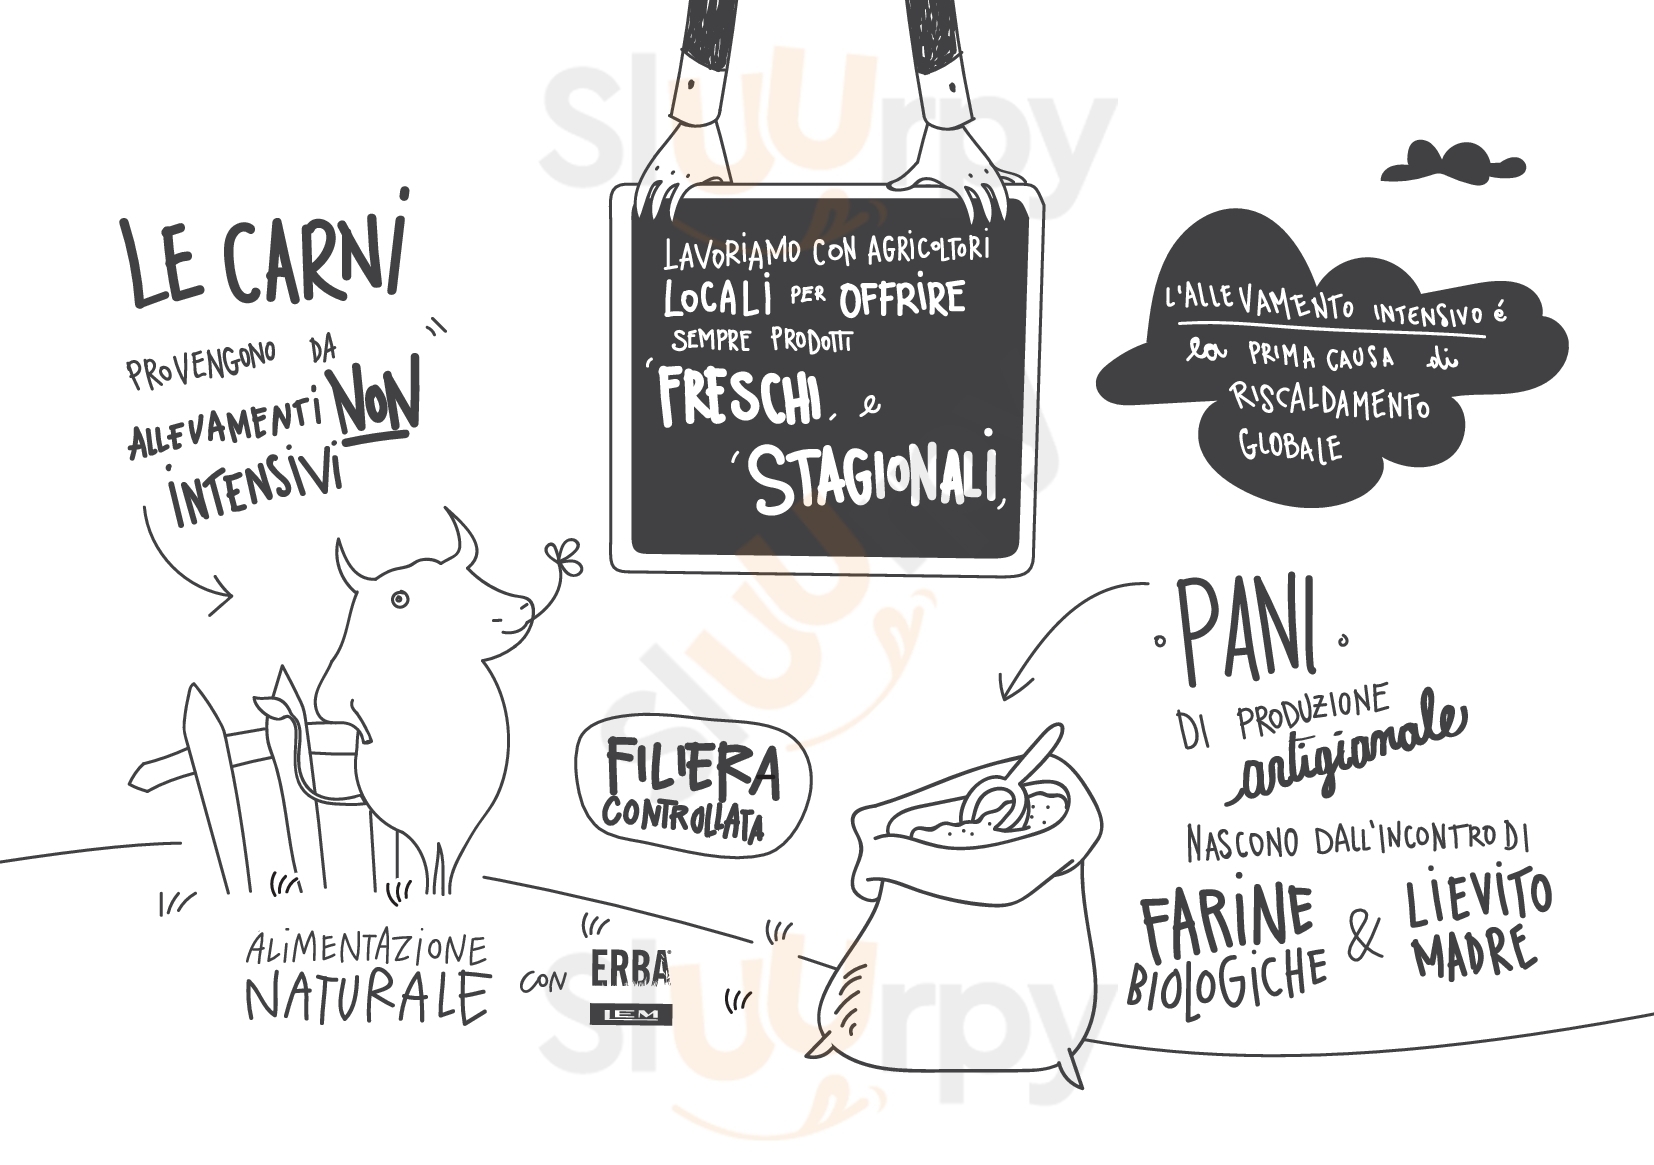 LAVORIAMO CON AGRICOLTORI
LOCALI PER OFFRIRE
SEMPRE PRODOTTI
FRESCHI, e
STAGIONALI
LE CARNI
PROVENGONO DA
ALLEVAMENTI NON
INTENSIVI
L'ALLEVAMENTO INTENSIVO é
la PRIMA CAUSA di
RISCALDAMENTO
GLOBALE
PANI
DI PRODUZIONE
artigianale
NASCONO DALL'INCONTRO DI
FARINE
BIOLOGICHE & LIEVITO
MADRE
FILIERA
CONTROLLATA
ALIMENTAZIONE
NATURALE CON ERBA
LEM
Sluurpy
Sluurpy
Sluurpy